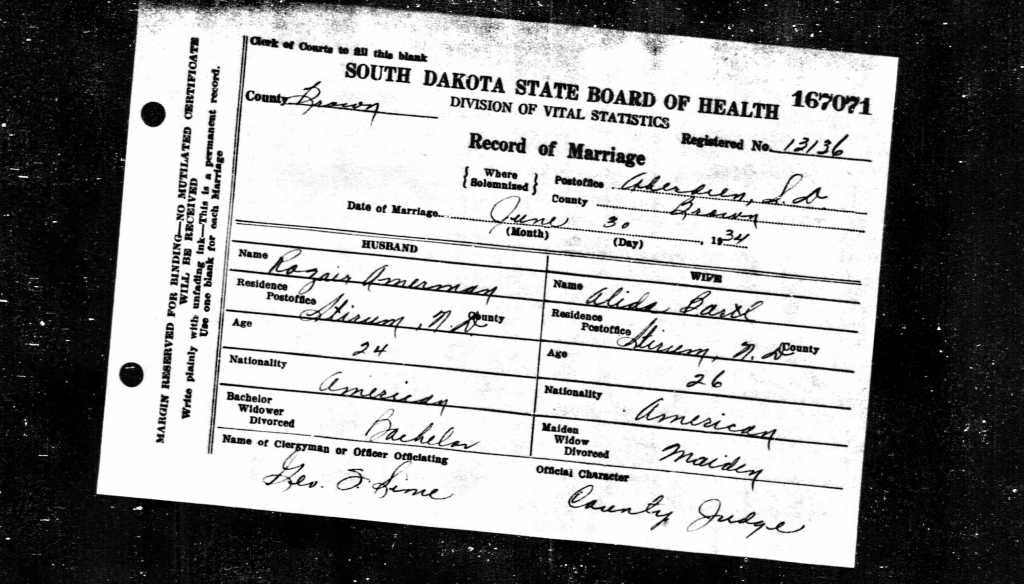 Clerk of Courts to fill this blank
SOUTH DAKOTA STATE BOARD OF HEALTH 167071
County Brown DIVISION OF VITAL STATISTICS
Registered No. 13136
Record of Marriage
{ Where Solemnized } Postoffice Aberdeen, S. D
County Brown
Date of Marriage June 30, 1934
(Month) (Day)
HUSBAND WIFE
Name Rozair Amerman Name Alida
Residence Residence
Postoffice N. D County Postoffice N. D County
Age 24 Age 26
Nationality American Nationality American
Bachelor Maiden
Widower Widow
Divorced Bachelor Divorced Maiden
Name of Clergyman or Officer Officiating Official Character
S. County Judge
MARGIN RESERVED FOR BINDING—NO MUTILATED CERTIFICATE
WILL BE RECEIVED
Write plainly with unfading ink—This is a permanent record.
Use one blank for each Marriage